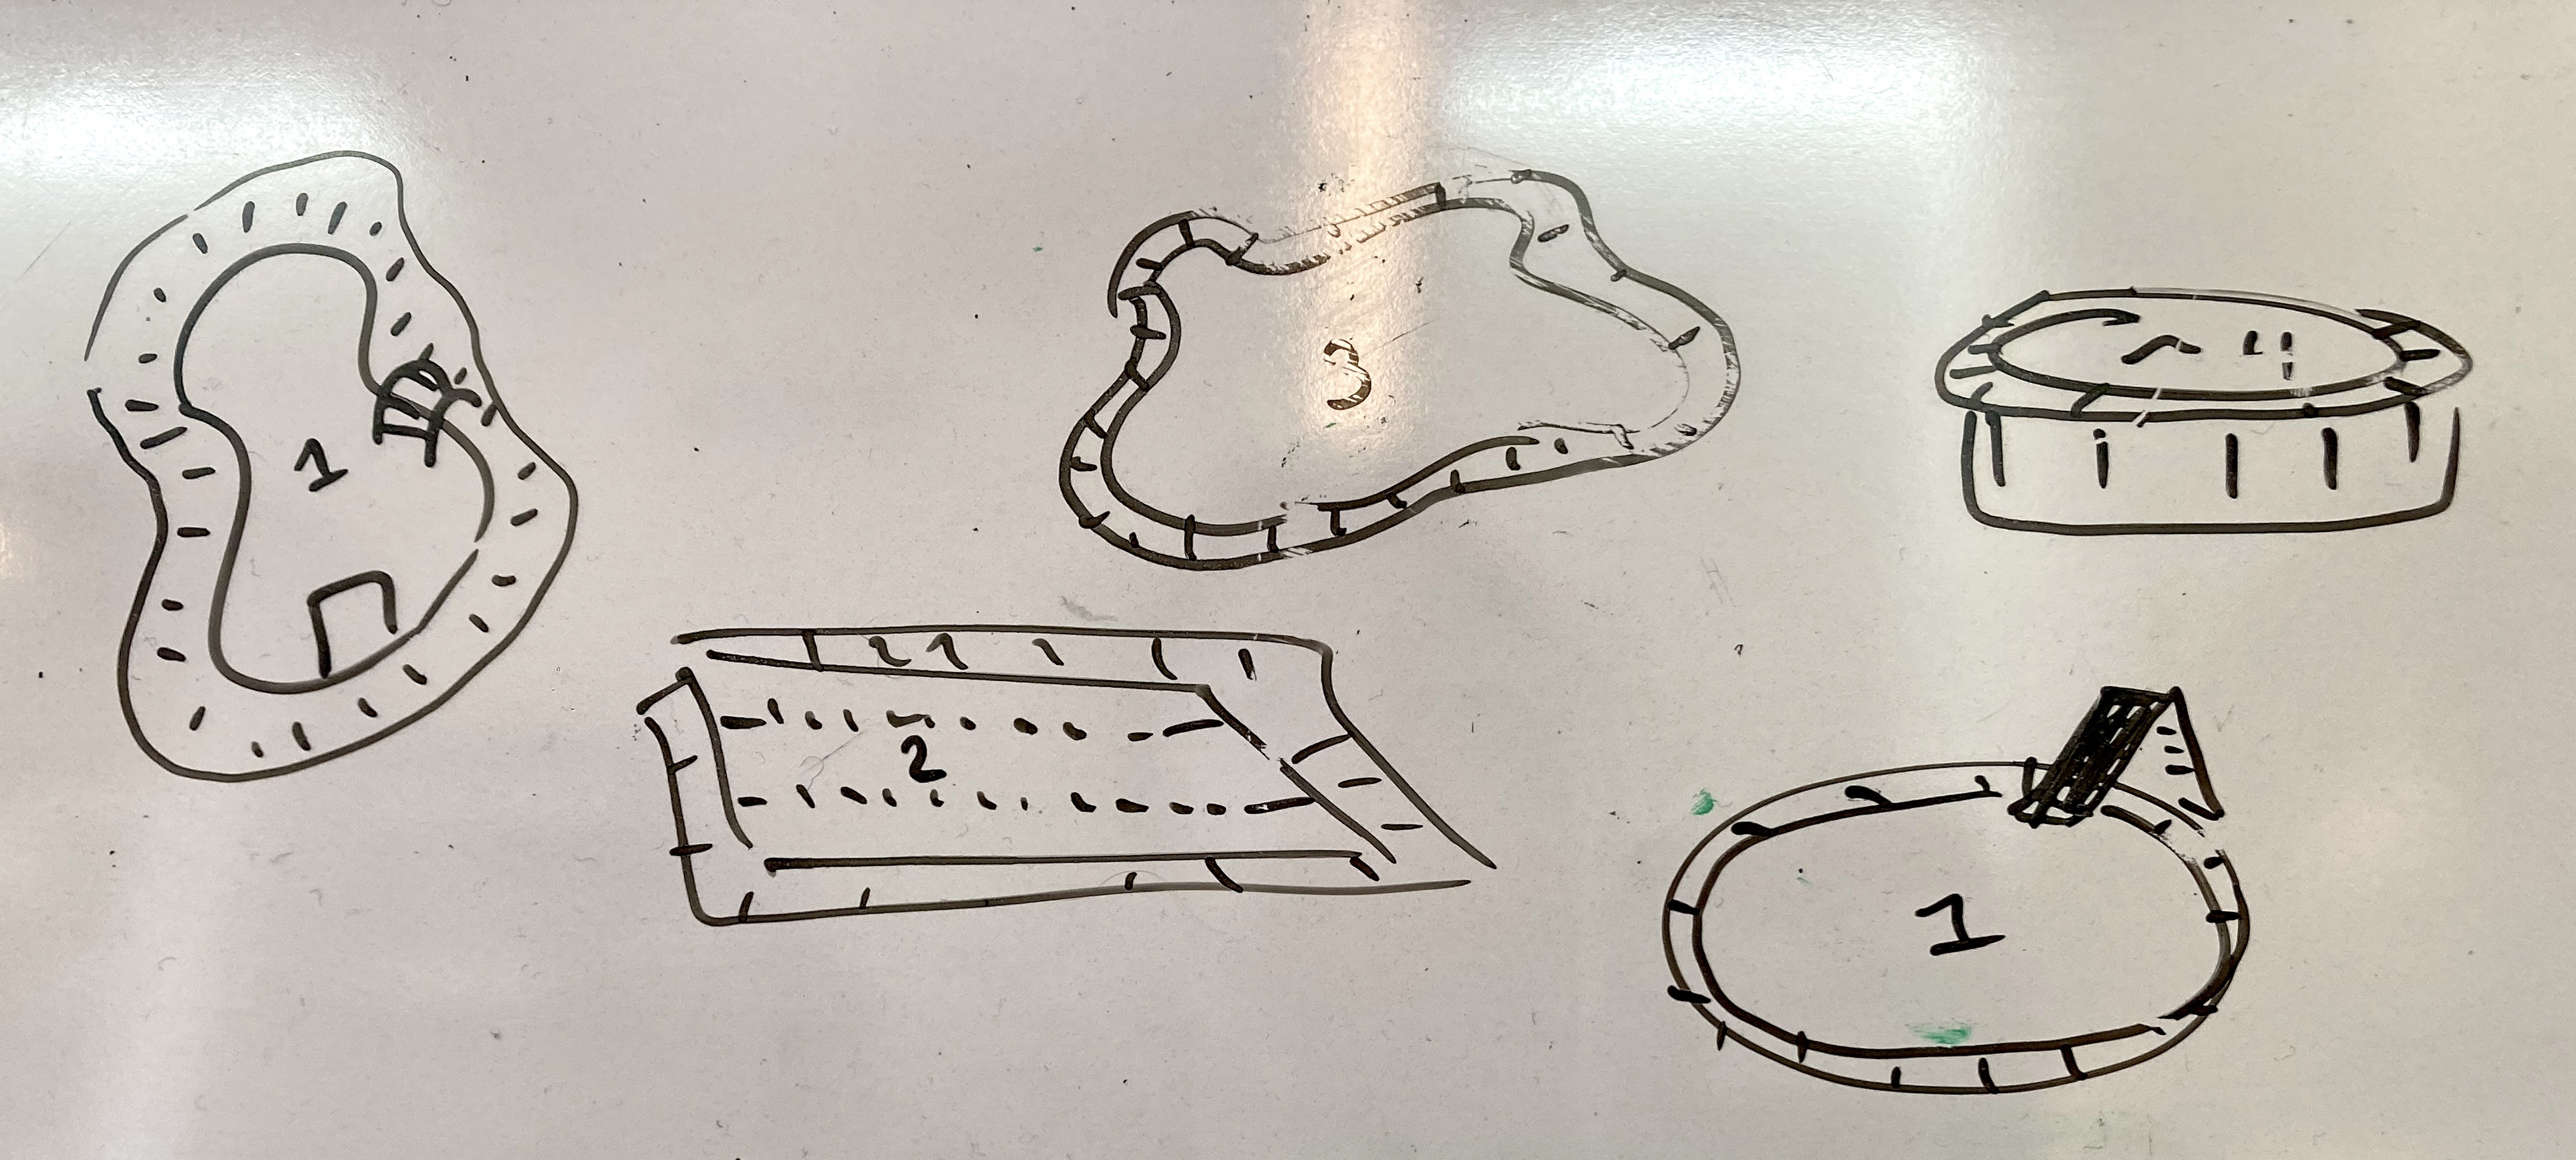 1
3
4
2
1